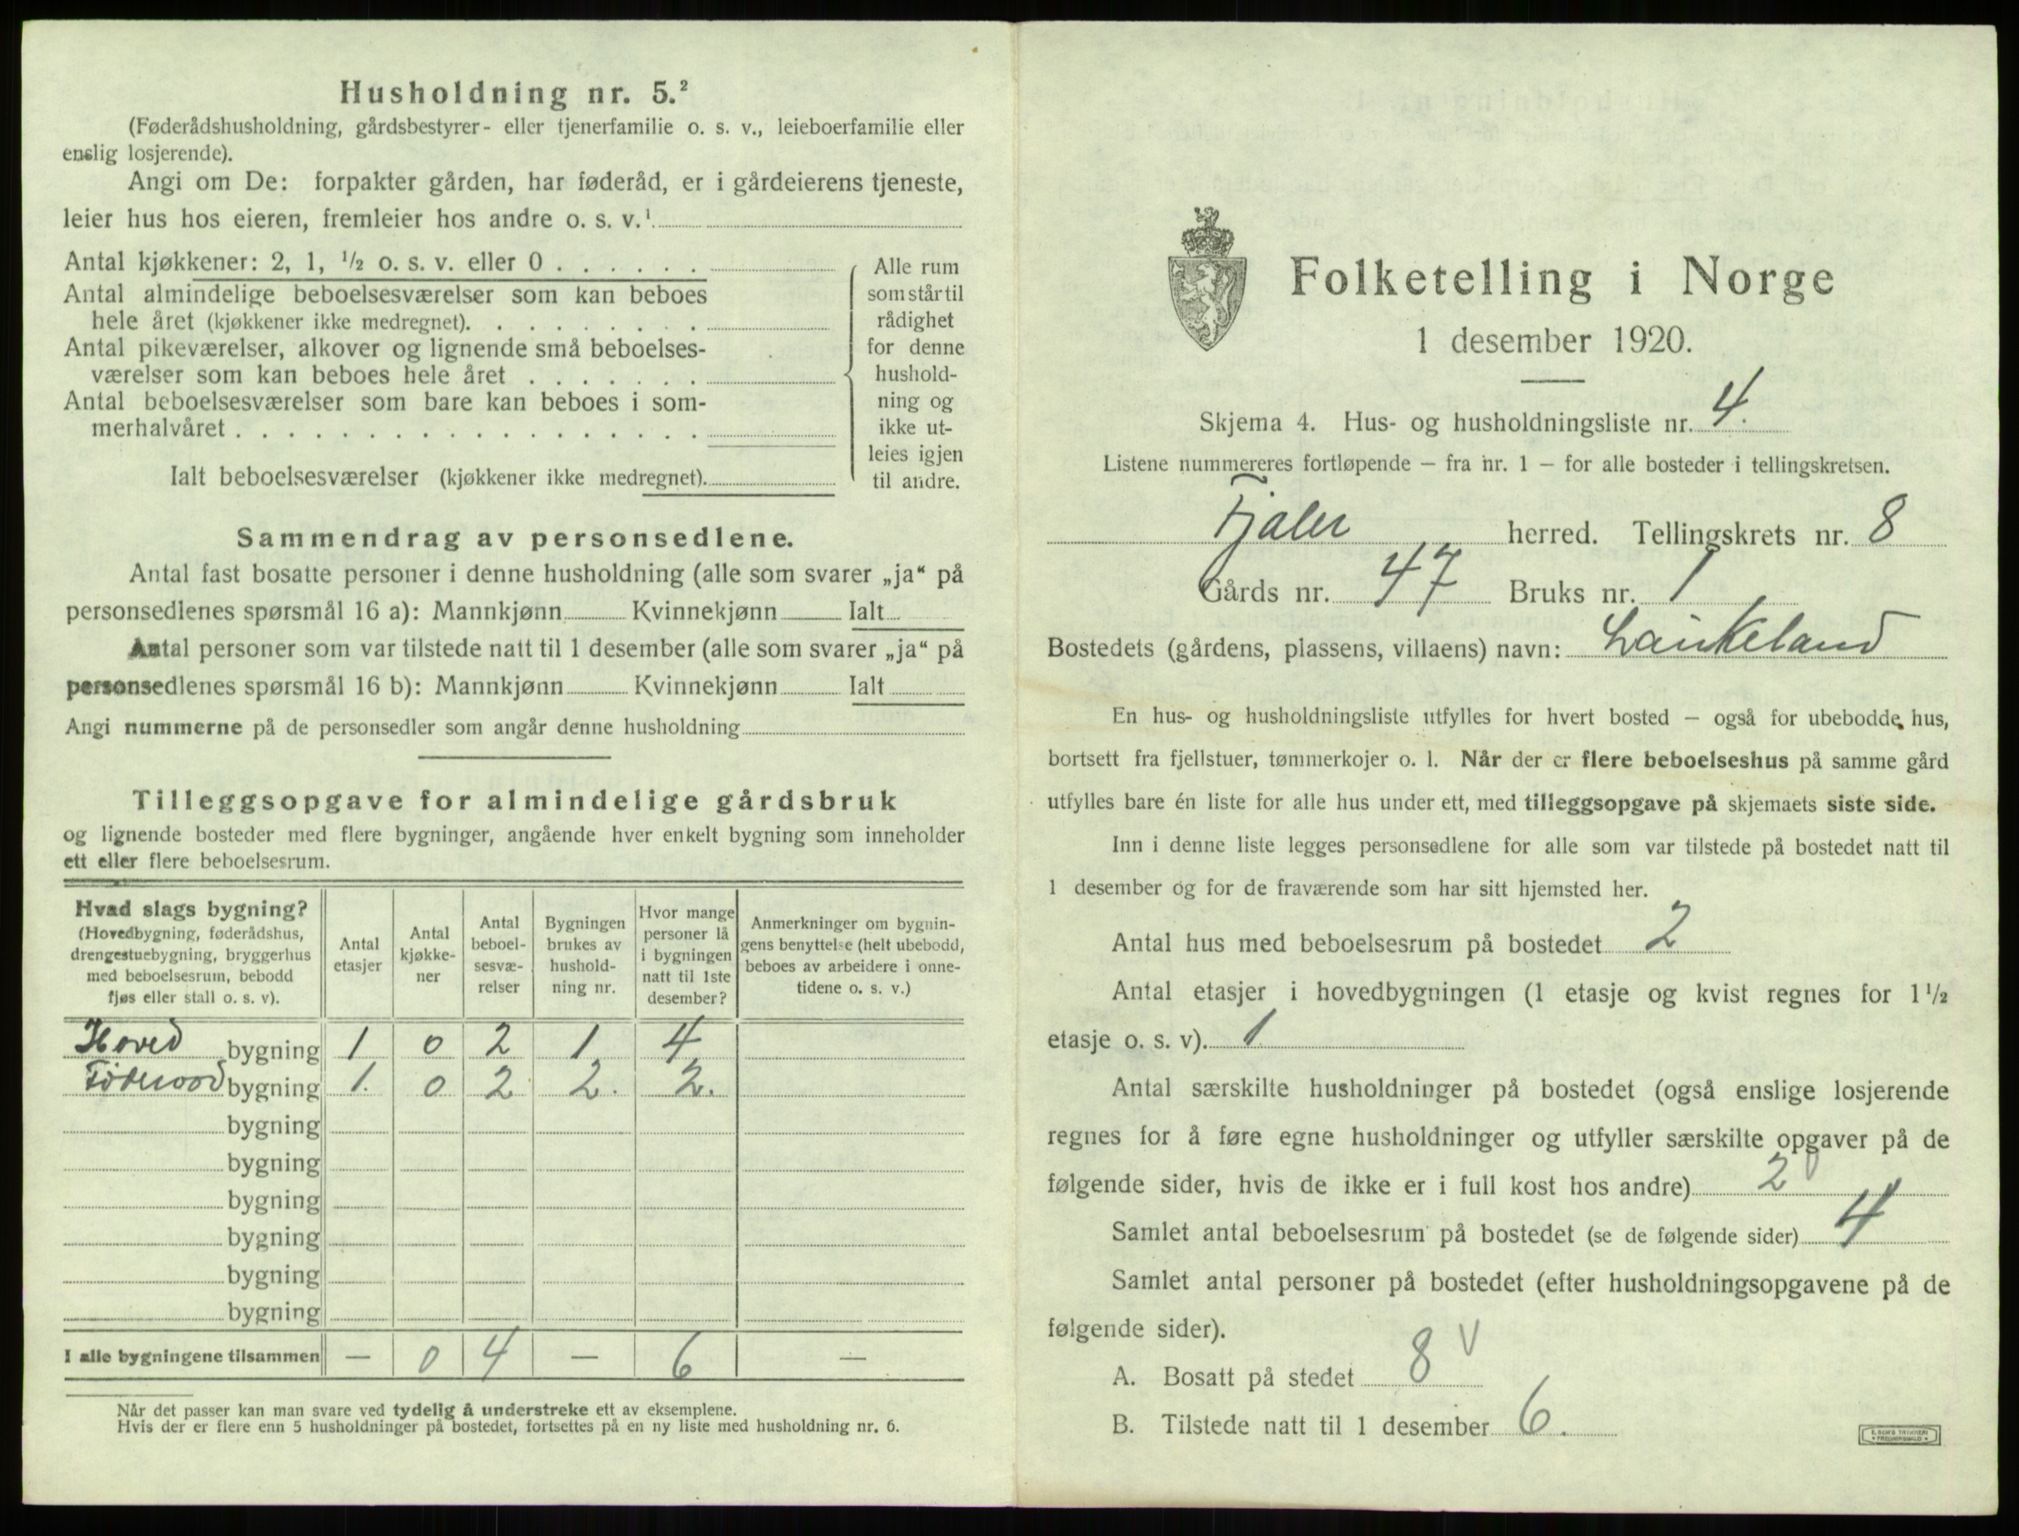 Husholdning nr. 5.²
(Føderådshusholdning, gårdsbestyrer- eller tjenerfamilie o. s. v., leieboerfamilie eller
enslig losjerende).
Angi om De: forpakter gården, har føderåd, er i gårdeierens tjeneste,
leier hus hos eieren, fremleier hos andre o. s. v.¹
Antal kjøkkener: 2, 1, ½ o. s. v. eller 0 . . . . . .
Antal almindelige beboelsesværelser som kan beboes
hele året (kjøkkener ikke medregnet). . . . . . . . .
Antal pikeværelser, alkover og lignende små beboelses-
værelser som kan beboes hele året . . . . . . .
Antal beboelsesværelser som bare kan beboes i som-
merhalvåret . . . . . . . . . . . . . . . . . .
Ialt beboelsesværelser (kjøkkener ikke medregnet).
Alle rum
som står til
rådighet
for denne
hushold-
ning og
ikke ut-
leies igjen
til andre.
Sammendrag av personsedlene.
Antal fast bosatte personer i denne husholdning (alle som svarer „ja“ på
personsedlenes spørsmål 16 a): Mannkjønn Kvinnekjønn Ialt
Antal personer som var tilstede natt til 1 desember (alle som svarer „ja“ på
personsedlenes spørsmål 16 b): Mannkjønn Kvinnekjønn Ialt
Angi nummerne på de personsedler som angår denne husholdning
Tilleggsopgave for almindelige gårdsbruk
og lignende bosteder med flere bygninger, angående hver enkelt bygning som inneholder
ett eller flere beboelsesrum.
Hvad slags bygning?
(Hovedbygning, føderådshus,
drengestuebygning, bryggerhus
med beboelsesrum, bebodd
fjøs eller stall o. s. v).
Antal
etasjer
Antal
kjøkke-
ner
Antal
beboel-
sesvæ-
relser
Bygningen
brukes av
hushold-
ning nr.
Hvor mange
personer lå
i bygningen
natt til 1ste
desember?
Anmerkninger om bygnin-
gens benyttelse (helt ubebodd,
beboes av arbeidere i onne-
tidene o. s. v.)
Hoved bygning 1 0 2 1 4
bygning 1. 0 2 2. 2.
bygning
bygning
bygning
bygning
bygning
bygning
I alle bygningene tilsammen — 0 4 — 6 —
Når det passer kan man svare ved tydelig å understreke ett av eksemplene.
Hvis der er flere enn 5 husholdninger på bostedet, fortsettes på en ny liste med husholdning nr. 6.
Folketelling i Norge
1 desember 1920.
Skjema 4. Hus- og husholdningsliste nr. 4.
Listene nummereres fortløpende – fra nr. 1 – for alle bosteder i tellingskretsen.
Fjaler herred. Tellingskrets nr. 8
Gårds nr. 47 Bruks nr. 1
Bostedets (gårdens, plassens, villaens) navn: Laukeland
En hus- og husholdningsliste utfylles for hvert bosted – også for ubebodde hus,
bortsett fra fjellstuer, tømmerkojer o. l. Når der er flere beboelseshus på samme gård
utfylles bare én liste for alle hus under ett, med tilleggsopgave på skjemaets siste side.
Inn i denne liste legges personsedlene for alle som var tilstede på bostedet natt til
1 desember og for de fraværende som har sitt hjemsted her.
Antal hus med beboelsesrum på bostedet 2
Antal etasjer i hovedbygningen (1 etasje og kvist regnes for 1 ½
etasje o. s. v). 1
Antal særskilte husholdninger på bostedet (også enslige losjerende
regnes for å føre egne husholdninger og utfyller særskilte opgaver på de
følgende sider, hvis de ikke er i full kost hos andre) 2 v
Samlet antal beboelsesrum på bostedet (se de følgende sider) 4
Samlet antal personer på bostedet (efter husholdningsopgavene på de
følgende sider).
A. Bosatt på stedet 8 v
B. Tilstede natt til 1 desember 6.